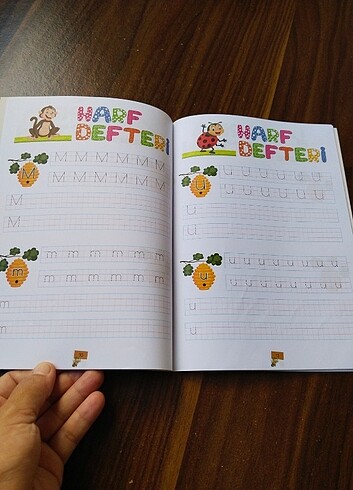 HARF
DEFTERİ
M M M M M M
M
M M M M M M
M
M
m m m m m m
m
m m m m m m
m
m
HARF
DEFTERİ
U U U U U U
U
U U U U U U
U
U
u u u u u u u
u
u u u u u u u
u
u